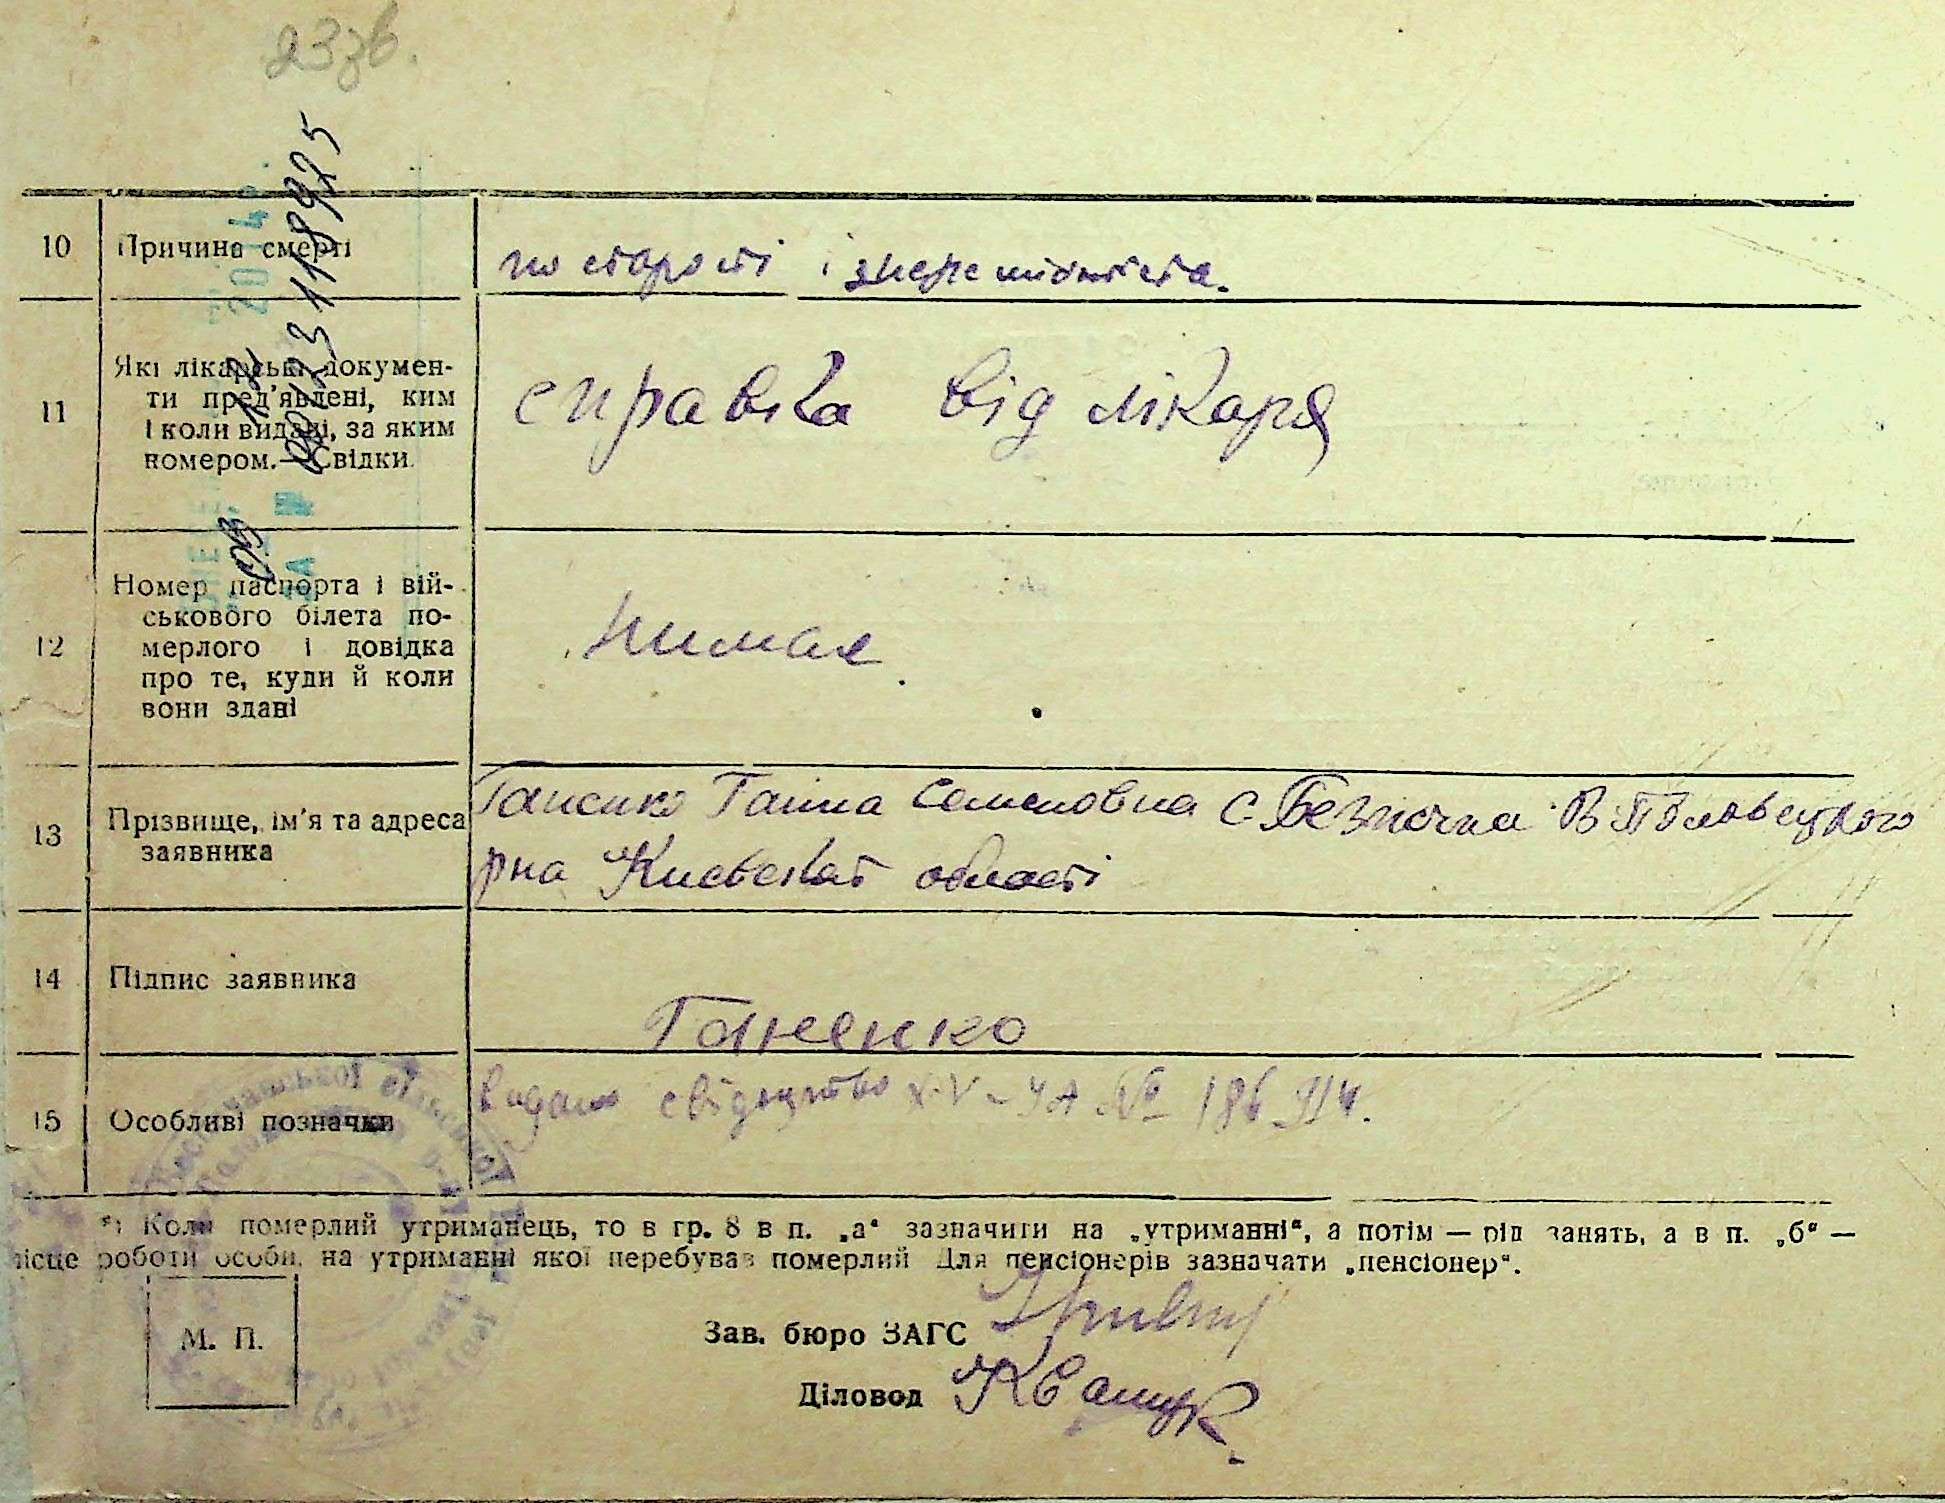 23зв.
10 Причина смерті по старості і
11 Які лікарські докумен-
ти пред'явлені, ким
і коли видані, за яким
номером.— Свідки.
справка від лікаря
12 Номер паспорта і вій-
ськового білета по-
мерлого і довідка
про те, куди й коли
вони здані
нимае
13 Прізвище, ім'я та адреса
заявника
Ганна Семеновна с. Безпечна В-Половецкого
рна Киевской області
14 Підпис заявника
Ганенко
15 Особливі позначки
видано свідоцтво X-V-УА №
*) Коли померлий утриманець, то в гр. 8 в п. „а“ зазначити на „утриманні“, а потім — рід занять, а в п. „б“ —
місце роботи особи, на утриманні якої перебував померлий Для пенсіонерів зазначати „пенсіонер“.
М. П.
Зав. бюро ЗАГС
Діловод